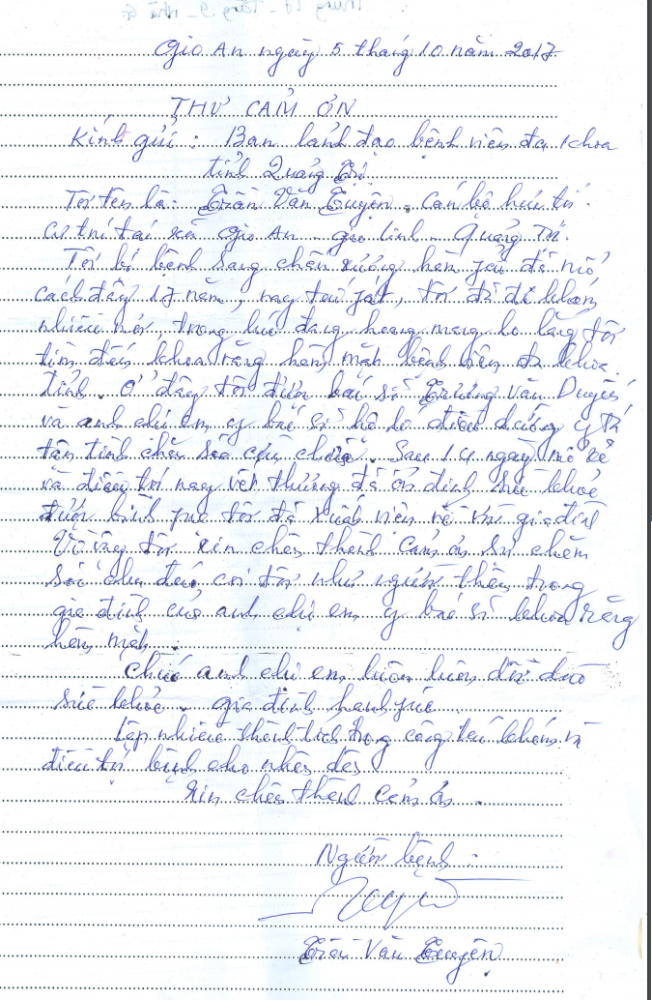 Gio An ngày 5 tháng 10 năm 2017
THƯ CẢM ƠN
Kính gửi : Ban lãnh đạo bệnh viện đa khoa
tỉnh Quảng Trị
Tôi tên là: Trần Văn Tuyện . Cán bộ hưu trí .
Cư trú tại xã Gio An - Gio Linh - Quảng Trị.
Tôi bị bệnh sang chấn xương hàm đã mổ
cách đây 17 năm, nay tái phát, tôi đã đi khám
nhiều nơi, trong lúc đang hoang mang lo lắng tôi
tìm đến khoa răng hàm mặt bệnh viện đa khoa
tỉnh . Ở đây tôi được bác sĩ Trương Văn
và anh chị em y bác sĩ hộ lý điều dưỡng y tá
tận tình chăm sóc cứu chữa . Sau 14 ngày mổ xẻ
và điều trị nay vết thương đã ổn định sức khỏe
được bình phục tôi đã xuất viện về với gia đình
Vì vậy tôi xin chân thành cảm ơn sự chăm
sóc chu đáo coi tôi như người thân trong
gia đình của anh chị em y bác sĩ khoa răng
hàm mặt .
Chúc anh chị em luôn luôn dồi dào
sức khỏe . gia đình hạnh phúc
Lập nhiều thành tích trong công tác khám và
điều trị bệnh cho nhân dân
Xin chân thành cảm ơn .
Người bệnh :
Trần Văn Tuyện